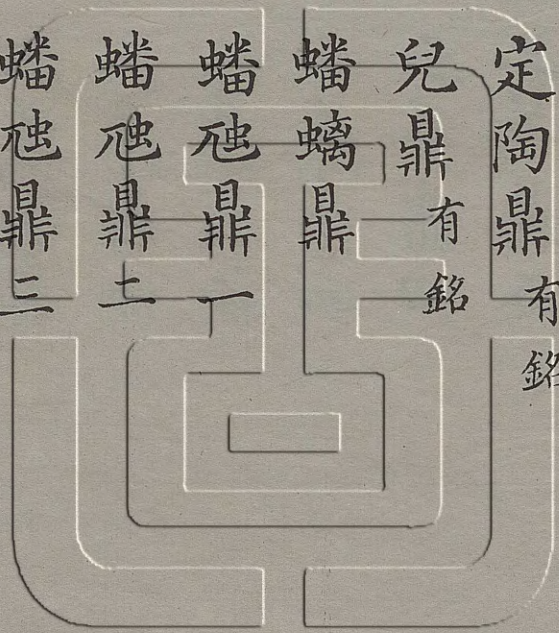 定陶鼎有銘
兒鼎有銘
蟠螭鼎
蟠虺鼎一
蟠虺鼎二
蟠虺鼎三